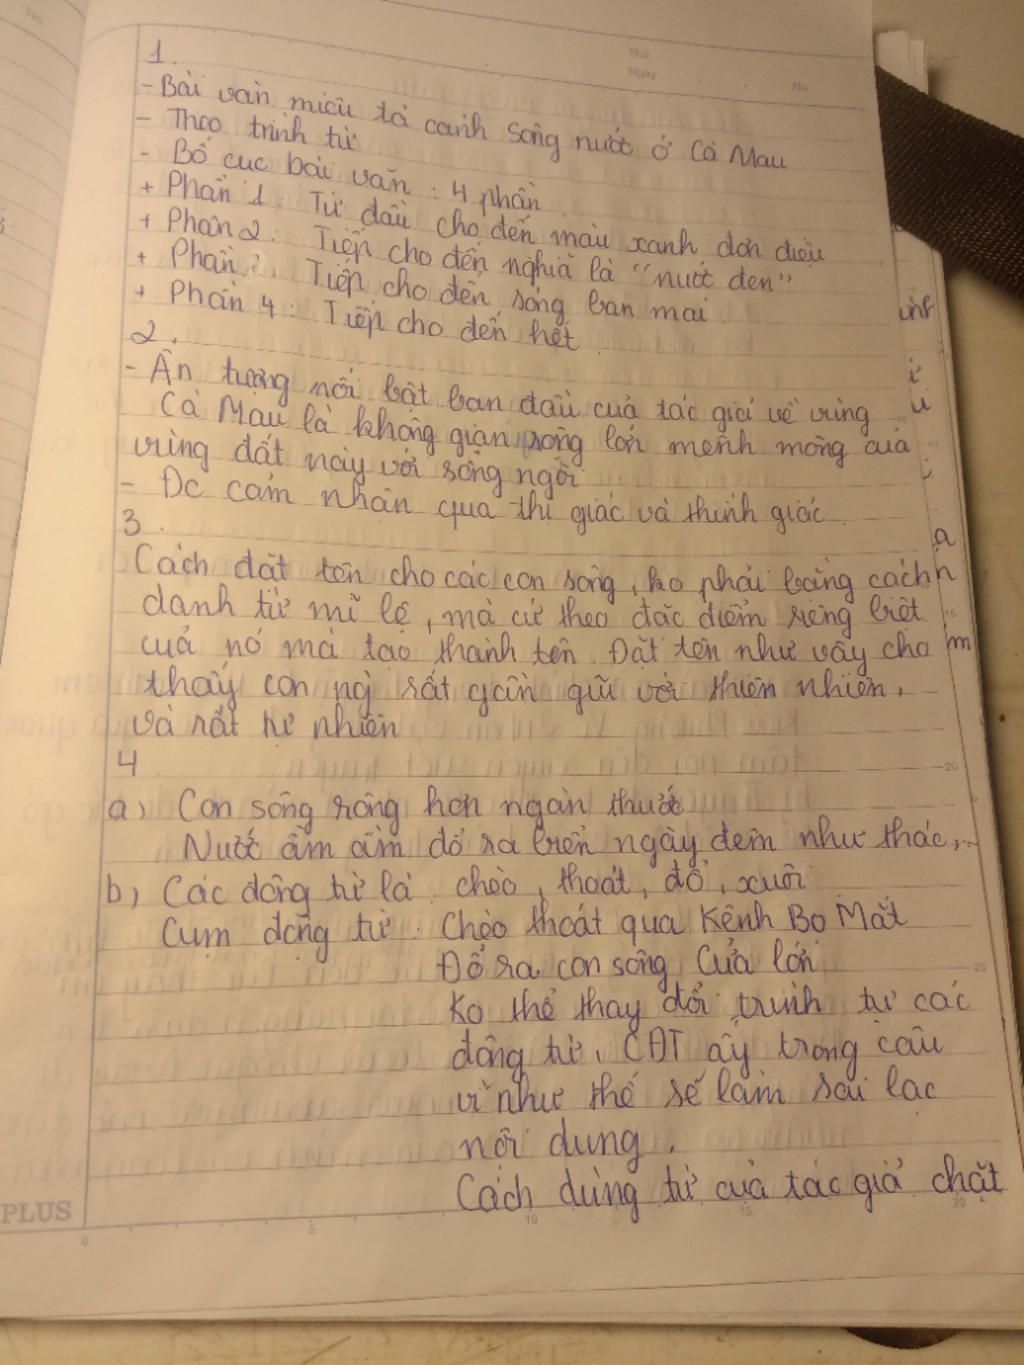 1.
- Bài văn miêu tả cảnh sông nước ở Cà Mau
- Theo trình tự
- Bố cục bài văn : 4 phần
+ Phần 1 : Từ đầu cho đến màu xanh đơn điệu
+ Phần 2 : Tiếp cho đến nghĩa là "nước đen"
+ Phần : Tiếp cho đến sóng ban mai
+ Phần 4 : Tiếp cho đến hết
2.
- Ấn tượng nổi bật ban đầu của tác giả về vùng
Cà Mau là không gian rộng lớn mênh mông của
vùng đất này với sông ngòi
- Đc cảm nhận qua thị giác và thính giác
3.
Cách đặt tên cho các con sông, ko phải bằng cách
danh từ mĩ lệ, mà cứ theo đặc điểm riêng biệt
của nó mà tạo thành tên. Đặt tên như vậy cho
thấy con ng rất gần gũi với thiên nhiên,
và rất tự nhiên
4
a) Con sông rộng hơn ngàn thước
Nước ầm ầm đổ ra biển ngày đêm như thác,...
b) Các động từ là : chèo, thoát, đổ, xuôi
Cụm động từ : Chèo thoát qua Kênh Bọ Mắt
Đổ ra con sông Cửa lớn
Ko thể thay đổi trình tự các
động từ, CĐT ấy trong câu
vì như thế sẽ làm sai lạc
nội dung.
Cách dùng từ của tác giả chặt
PLUS